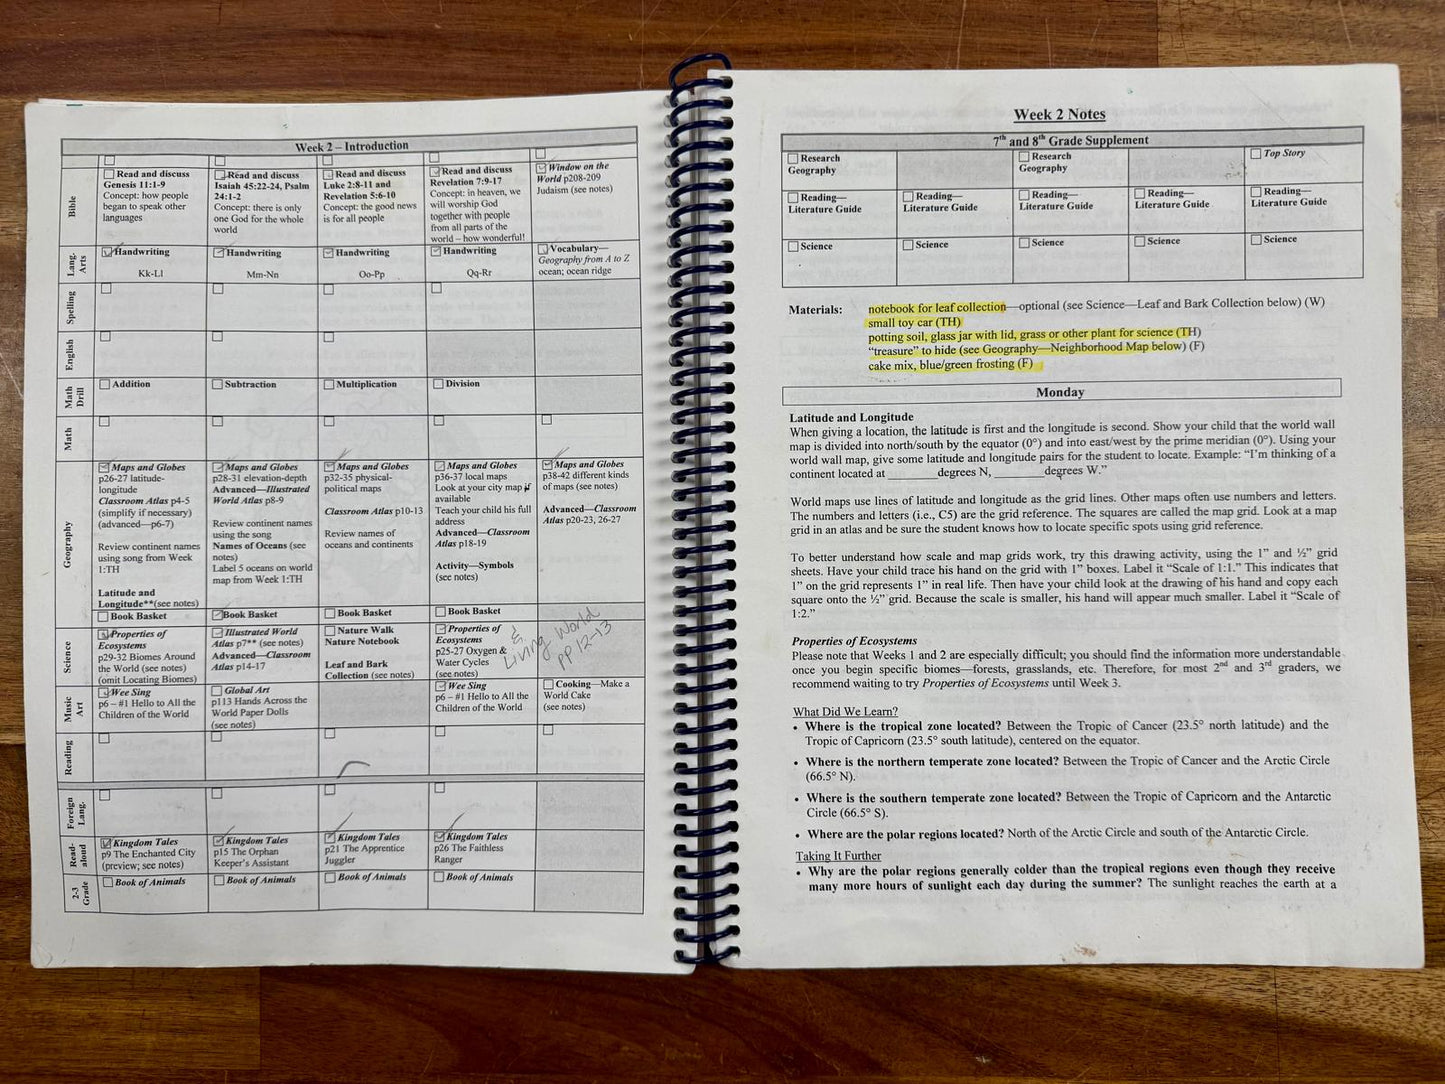 Week 2 – Introduction
Bible
Read and discuss
Genesis 11:1-9
Concept: how people
began to speak other
languages
Read and discuss
Isaiah 45:22-24, Psalm
24:1-2
Concept: there is only
one God for the whole
world
Read and discuss
Luke 2:8-11 and
Revelation 5:6-10
Concept: the good news
is for all people
Read and discuss
Revelation 7:9-17
Concept: in heaven, we
will worship God
together with people
from all parts of the
world – how wonderful!
Window on the
World p208-209
Judaism (see notes)
Lang.
Arts
Handwriting
Kk-Ll
Handwriting
Mm-Nn
Handwriting
Oo-Pp
Handwriting
Qq-Rr
Vocabulary—
Geography from A to Z
ocean; ocean ridge
Spelling
English
Math
Drill
Addition
Subtraction
Multiplication
Division
Math
Geography
Maps and Globes
p26-27 latitude-
longitude
Classroom Atlas p4-5
(simplify if necessary)
(advanced—p6-7)
Review continent names
using song from Week
1:TH
Latitude and
Longitude**(see notes)
Maps and Globes
p28-31 elevation-depth
Advanced—Illustrated
World Atlas p8-9
Review continent names
using the song
Names of Oceans (see
notes)
Label 5 oceans on world
map from Week 1:TH
Maps and Globes
p32-35 physical-
political maps
Classroom Atlas p10-13
Review names of
oceans and continents
Maps and Globes
p36-37 local maps
Look at your city map if
available
Teach your child his full
address
Advanced—Classroom
Atlas p18-19
Activity—Symbols
(see notes)
Maps and Globes
p38-42 different kinds
of maps (see notes)
Advanced—Classroom
Atlas p20-23, 26-27
Book Basket
Book Basket
Book Basket
Book Basket
Science
Properties of
Ecosystems
p29-32 Biomes Around
the World (see notes)
(omit Locating Biomes)
Illustrated World
Atlas p7** (see notes)
Advanced—Classroom
Atlas p14-17
Nature Walk
Nature Notebook
Leaf and Bark
Collection (see notes)
Properties of
Ecosystems
p25-27 Oxygen &
Water Cycles
(see notes)
& Living World
pp 12-13
Music
Art
Wee Sing
p6 – #1 Hello to All the
Children of the World
Global Art
p113 Hands Across the
World Paper Dolls
(see notes)
Wee Sing
p6 – #1 Hello to All the
Children of the World
Cooking—Make a
World Cake
(see notes)
Reading
Foreign
Lang.
Read-
aloud
Kingdom Tales
p9 The Enchanted City
(preview; see notes)
Kingdom Tales
p15 The Orphan
Keeper's Assistant
Kingdom Tales
p21 The Apprentice
Juggler
Kingdom Tales
p26 The Faithless
Ranger
2-3
Grade
Book of Animals
Book of Animals
Book of Animals
Book of Animals
Week 2 Notes
7th and 8th Grade Supplement
Research
Geography
Research
Geography
Top Story
Reading—
Literature Guide
Reading—
Literature Guide
Reading—
Literature Guide
Reading—
Literature Guide
Reading—
Literature Guide
Science
Science
Science
Science
Science
Materials: notebook for leaf collection—optional (see Science—Leaf and Bark Collection below) (W)
small toy car (TH)
potting soil, glass jar with lid, grass or other plant for science (TH)
“treasure” to hide (see Geography—Neighborhood Map below) (F)
cake mix, blue/green frosting (F)
Monday
Latitude and Longitude
When giving a location, the latitude is first and the longitude is second. Show your child that the world wall
map is divided into north/south by the equator (0°) and into east/west by the prime meridian (0°). Using your
world wall map, give some latitude and longitude pairs for the student to locate. Example: “I'm thinking of a
continent located at ________degrees N, ________degrees W.”
World maps use lines of latitude and longitude as the grid lines. Other maps often use numbers and letters.
The numbers and letters (i.e., C5) are the grid reference. The squares are called the map grid. Look at a map
grid in an atlas and be sure the student knows how to locate specific spots using grid reference.
To better understand how scale and map grids work, try this drawing activity, using the 1” and ½” grid
sheets. Have your child trace his hand on the grid with 1” boxes. Label it “Scale of 1:1.” This indicates that
1” on the grid represents 1” in real life. Then have your child look at the drawing of his hand and copy each
square onto the ½” grid. Because the scale is smaller, his hand will appear much smaller. Label it “Scale of
1:2.”
Properties of Ecosystems
Please note that Weeks 1 and 2 are especially difficult; you should find the information more understandable
once you begin specific biomes—forests, grasslands, etc. Therefore, for most 2nd and 3rd graders, we
recommend waiting to try Properties of Ecosystems until Week 3.
What Did We Learn?
• Where is the tropical zone located? Between the Tropic of Cancer (23.5° north latitude) and the
Tropic of Capricorn (23.5° south latitude), centered on the equator.
• Where is the northern temperate zone located? Between the Tropic of Cancer and the Arctic Circle
(66.5° N).
• Where is the southern temperate zone located? Between the Tropic of Capricorn and the Antarctic
Circle (66.5° S).
• Where are the polar regions located? North of the Arctic Circle and south of the Antarctic Circle.
Taking It Further
• Why are the polar regions generally colder than the tropical regions even though they receive
many more hours of sunlight each day during the summer? The sunlight reaches the earth at a